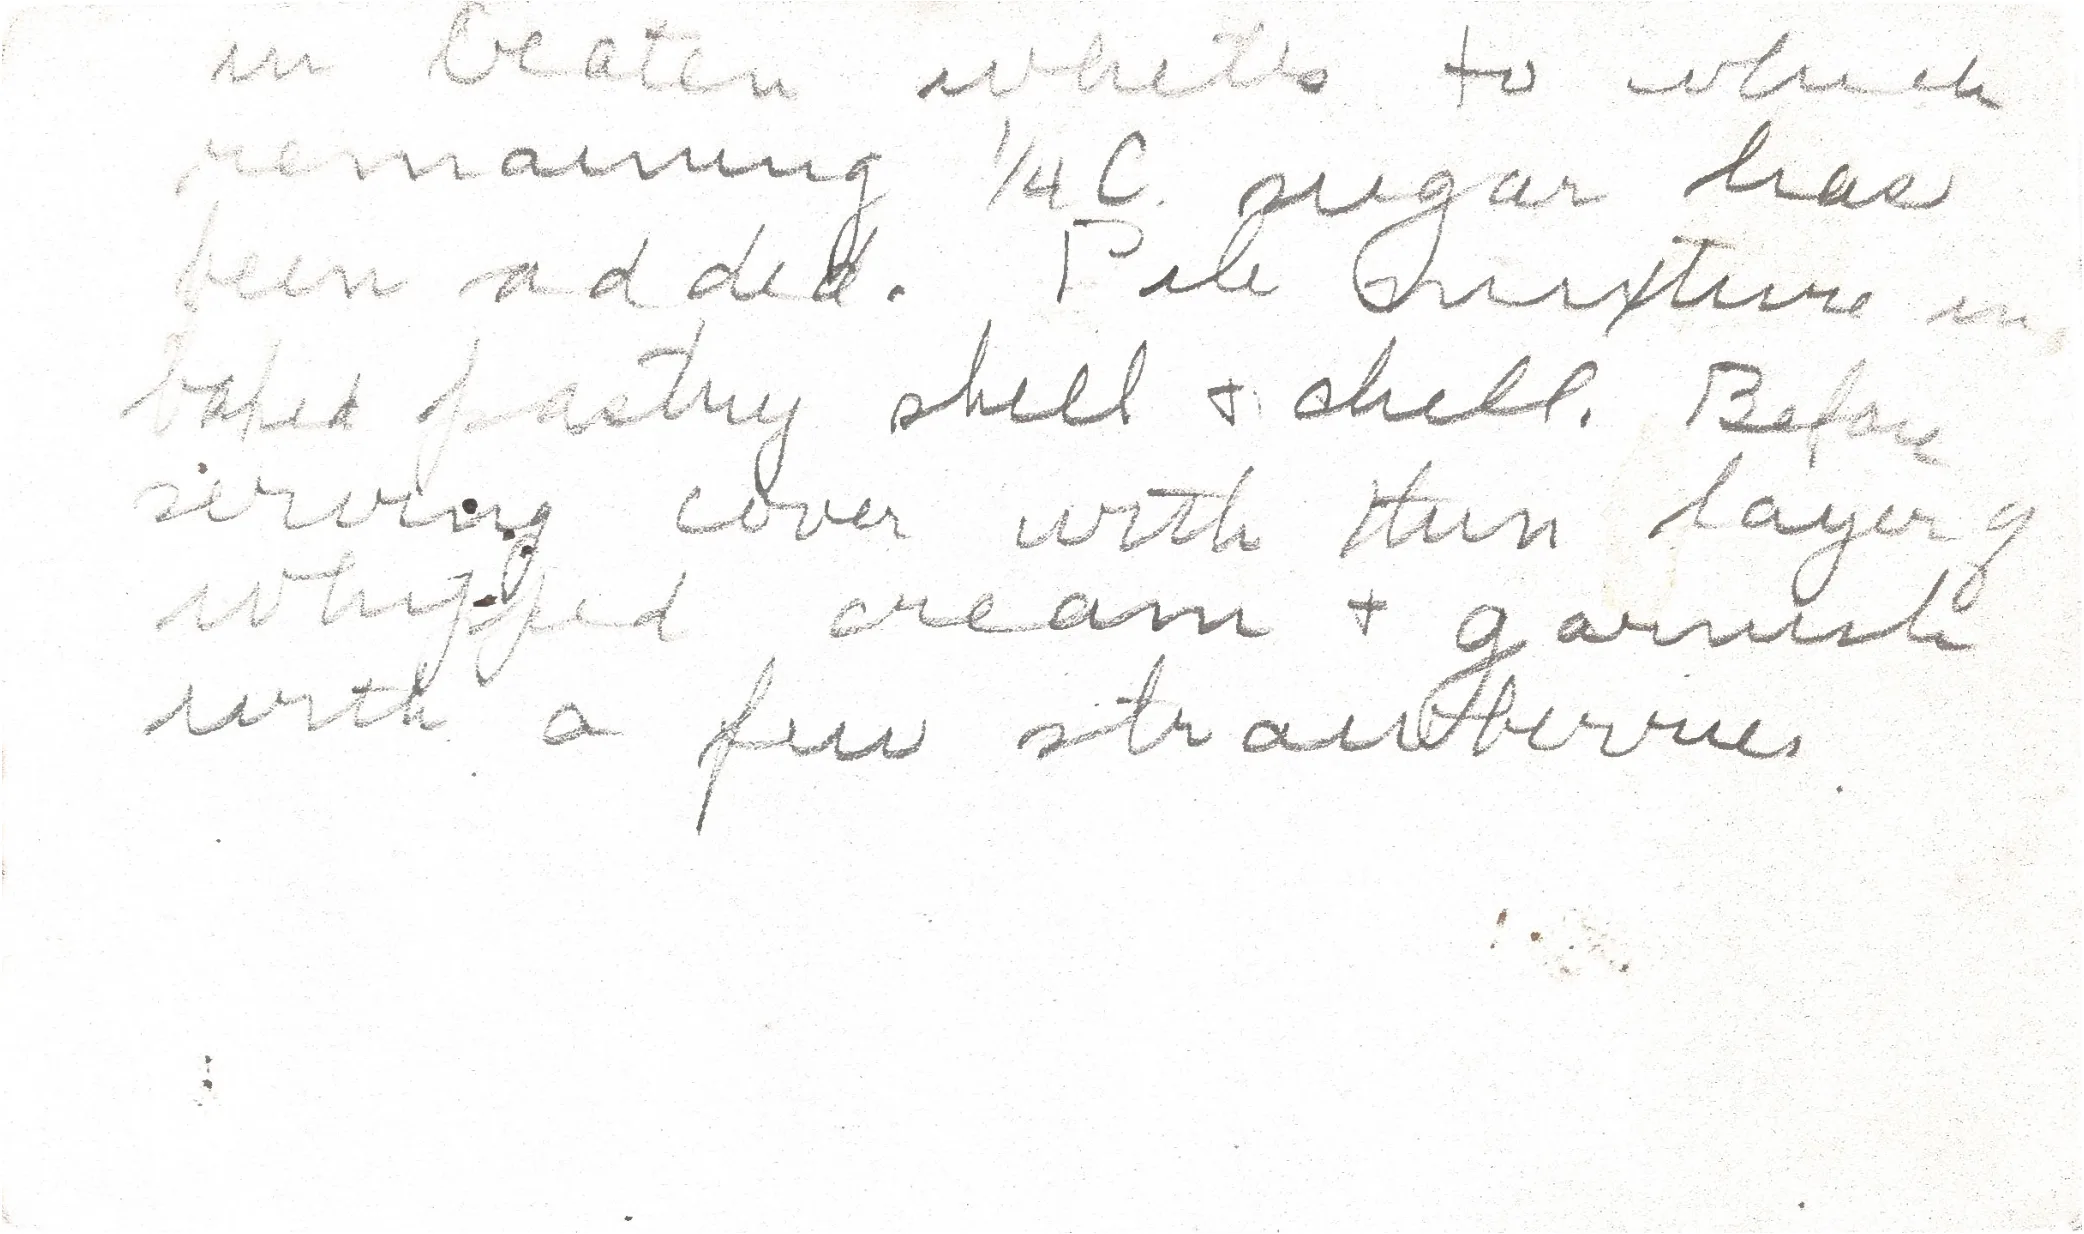 in beaten whites to which
remaining 1/4 C. sugar has
been added. Pile mixture in
baked pastry shell + chell.  Before
serving cover with thin layer of
whipped cream + garnish
with a few strawberries.